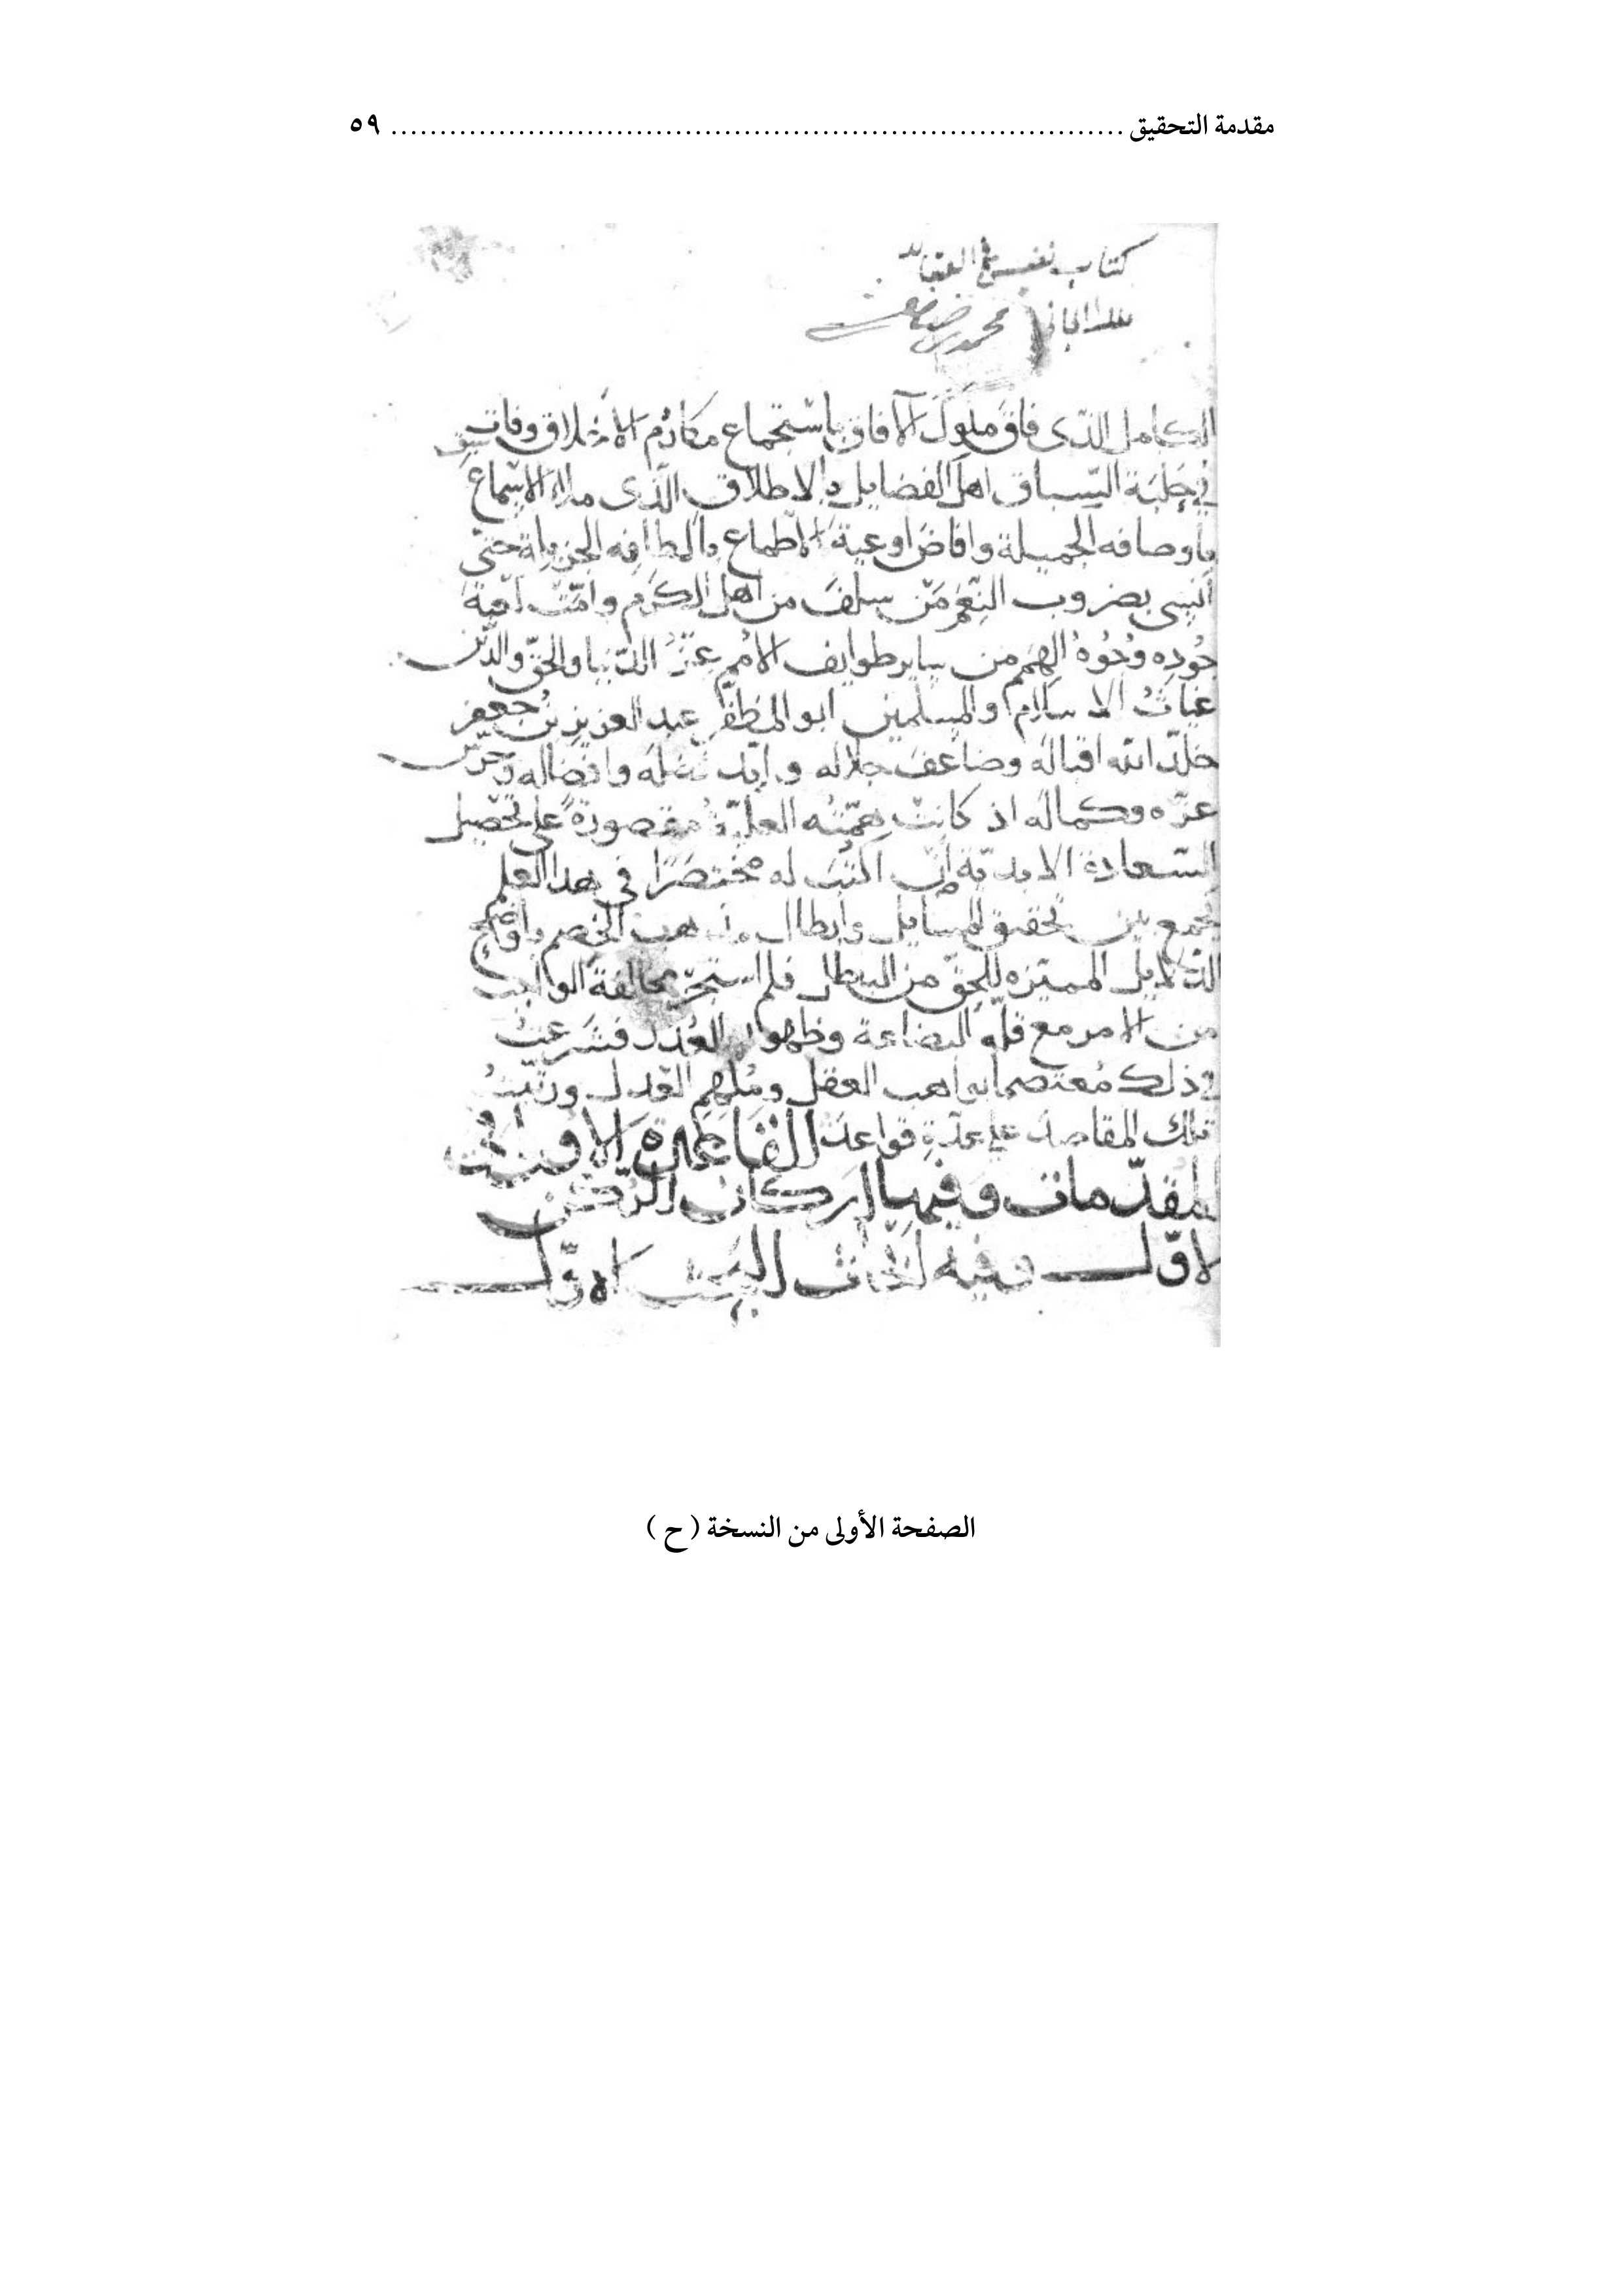 مقدمة التحقيق ........................................................................... ٥٩
كتاب نفيس في العقايد
محمد
الكامل الذى فاق ملوك الآفاق باستجماع مكارم الأخلاق وفات سبق
في حَلبَة السّباق اهل الفضايل بالاطلاق الّذى ملاء الاسماع
باوصافه الجميلة وافاض اوعية الاطماع بالطافِه الجزيلة حتى
أنسى بضروب النّعم مَن سلفَ من اهل الكَرَم وامّت لعبة
جُودِه وُجُوهُ الهِمَم من ساير طوايف الأمم عِزُّ الدّنيا والحقّ والدّين
غياثُ الاسلام والمسلمين ابو المظفّر عبد العزيز بن جعفر
خلّد الله اقباله وضاعفَ جلاله و ابّد فضله وافضاله وحرس
عزّه وكماله اذ كانت هِمّتُه العليّة مقصورةً على تحصيل
السّعادة الابديّة أن اكتبَ له مختصَرًا في هذا العلم
يجمع بين تحقيق المسايل وابطال مذهب الخصم باوضح
الدّلايل المميّزه للحقّ من الباطل فلم استجز مخالفة الواجب
من الامر مع قلّة البضاعة وظهور العُذر فشرعتُ
في ذلك مُعتصما بواهب العقل ومُلهم العدل ورتّبتُ
تلك المقاصدَ على عدّةِ قواعدَ القاعدة الاولى في
المقدّمات وفيها اركان الرّكن
الاوّل وفيه ابحاث البحث الاوّل
الصفحة الأولى من النسخة ( ح )